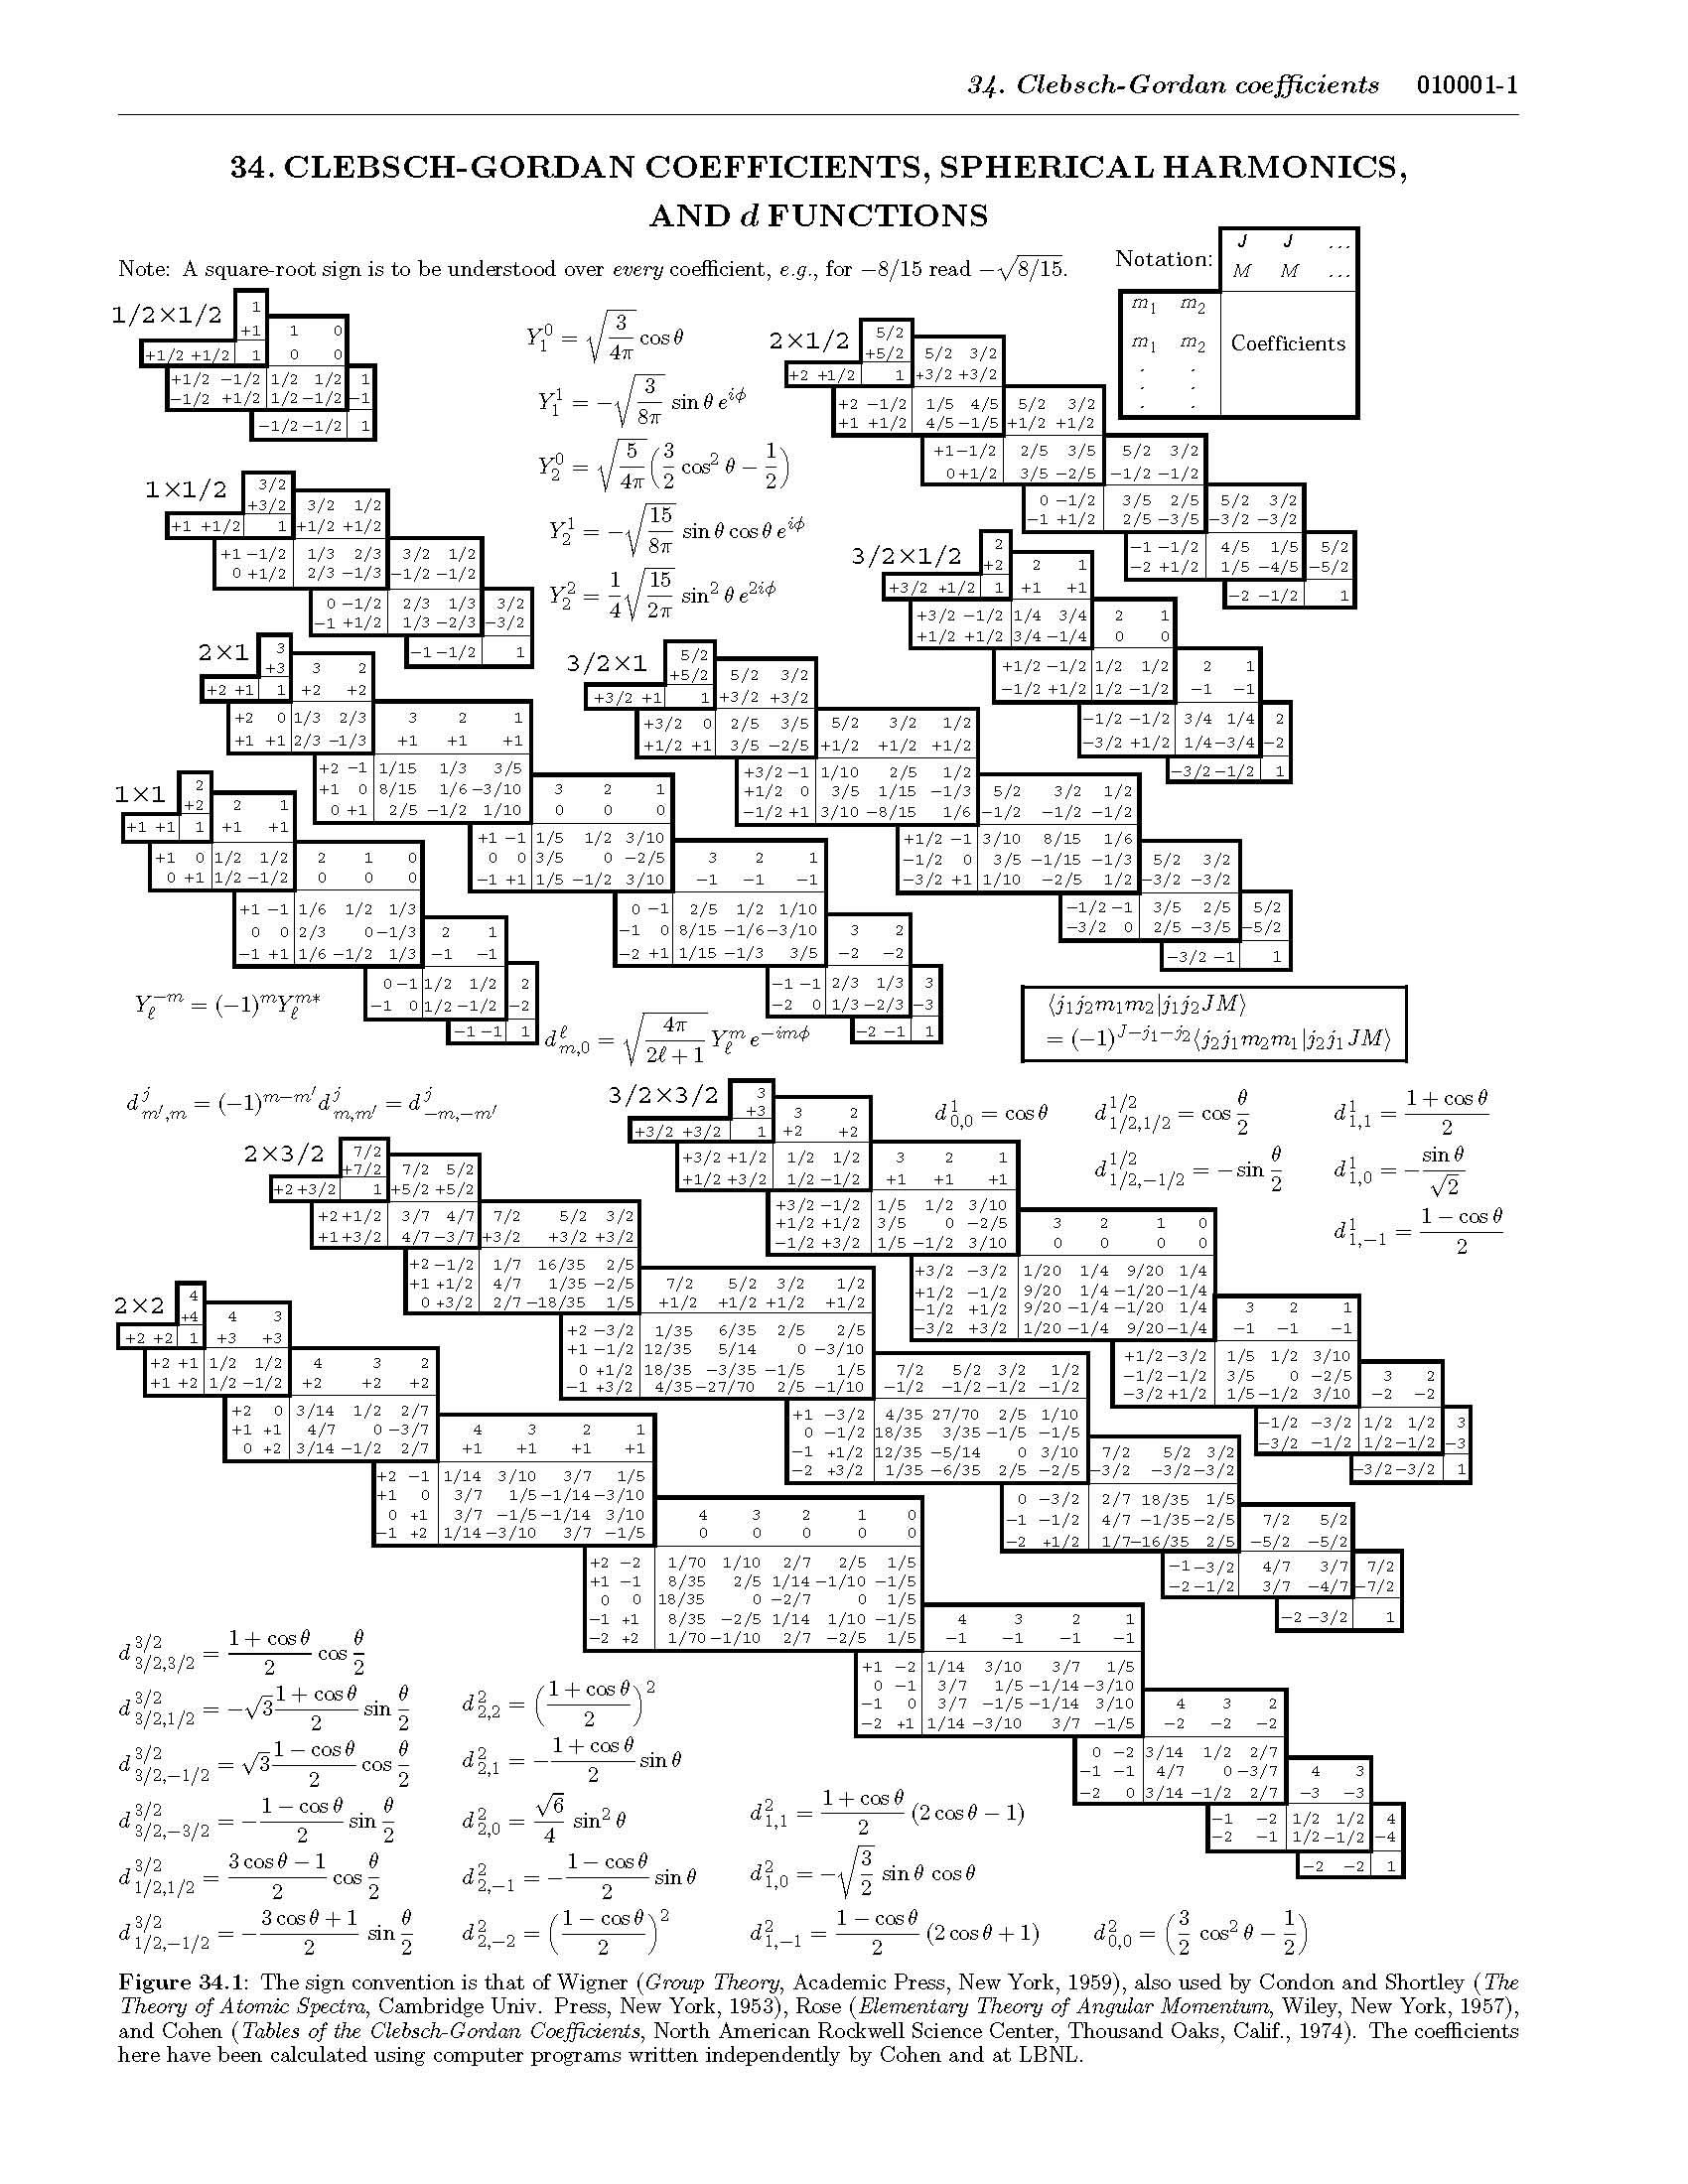 34. Clebsch-Gordan coefficients 010001-1
34. CLEBSCH-GORDAN COEFFICIENTS, SPHERICAL HARMONICS,
AND d FUNCTIONS
Note: A square-root sign is to be understood over every coefficient, e.g., for −8/15 read −√8/15.
Notation:
J J ...
M M ...
m1 m2
m1 m2 Coefficients
. .
. .
. .
1/2×1/2
1
+1 1 0
+1/2 +1/2 1 0 0
+1/2 −1/2 1/2 1/2 1
−1/2 +1/2 1/2 −1/2 −1
−1/2 −1/2 1
Y₁⁰ = √(3/4π) cos θ
Y₁¹ = −√(3/8π) sin θ e^{iφ}
Y₂⁰ = √(5/4π) (3/2 cos² θ − 1/2)
Y₂¹ = −√(15/8π) sin θ cos θ e^{iφ}
Y₂² = 1/4 √(15/2π) sin² θ e^{2iφ}
2×1/2
5/2
+5/2 5/2 3/2
+2 +1/2 1 +3/2 +3/2
+2 −1/2 1/5 4/5 5/2 3/2
+1 +1/2 4/5 −1/5 +1/2 +1/2
+1 −1/2 2/5 3/5 5/2 3/2
0 +1/2 3/5 −2/5 −1/2 −1/2
0 −1/2 3/5 2/5 5/2 3/2
−1 +1/2 2/5 −3/5 −3/2 −3/2
−1 −1/2 4/5 1/5 5/2
−2 +1/2 1/5 −4/5 −5/2
−2 −1/2 1
1×1/2
3/2
+3/2 3/2 1/2
+1 +1/2 1 +1/2 +1/2
+1 −1/2 1/3 2/3 3/2 1/2
0 +1/2 2/3 −1/3 −1/2 −1/2
0 −1/2 2/3 1/3 3/2
−1 +1/2 1/3 −2/3 −3/2
−1 −1/2 1
3/2×1/2
2
+2 2 1
+3/2 +1/2 1 +1 +1
+3/2 −1/2 1/4 3/4 2 1
+1/2 +1/2 3/4 −1/4 0 0
+1/2 −1/2 1/2 1/2 2 1
−1/2 +1/2 1/2 −1/2 −1 −1
−1/2 −1/2 3/4 1/4 2
−3/2 +1/2 1/4 −3/4 −2
−3/2 −1/2 1
2×1
3
+3 3 2
+2 +1 1 +2 +2
+2 0 1/3 2/3 3 2 1
+1 +1 2/3 −1/3 +1 +1 +1
+2 −1 1/15 1/3 3/5
+1 0 8/15 1/6 −3/10 3 2 1
0 +1 2/5 −1/2 1/10 0 0 0
+1 −1 1/5 1/2 3/10
0 0 3/5 0 −2/5 3 2 1
−1 +1 1/5 −1/2 3/10 −1 −1 −1
0 −1 2/5 1/2 1/10
−1 0 8/15 −1/6 −3/10 3 2
−2 +1 1/15 −1/3 3/5 −2 −2
−1 −1 2/3 1/3 3
−2 0 1/3 −2/3 −3
−2 −1 1
3/2×1
5/2
+5/2 5/2 3/2
+3/2 +1 1 +3/2 +3/2
+3/2 0 2/5 3/5 5/2 3/2 1/2
+1/2 +1 3/5 −2/5 +1/2 +1/2 +1/2
+3/2 −1 1/10 2/5 1/2
+1/2 0 3/5 1/15 −1/3 5/2 3/2 1/2
−1/2 +1 3/10 −8/15 1/6 −1/2 −1/2 −1/2
+1/2 −1 3/10 8/15 1/6
−1/2 0 3/5 −1/15 −1/3 5/2 3/2
−3/2 +1 1/10 −2/5 1/2 −3/2 −3/2
−1/2 −1 3/5 2/5 5/2
−3/2 0 2/5 −3/5 −5/2
−3/2 −1 1
1×1
2
+2 2 1
+1 +1 1 +1 +1
+1 0 1/2 1/2 2 1 0
0 +1 1/2 −1/2 0 0 0
+1 −1 1/6 1/2 1/3
0 0 2/3 0 −1/3 2 1
−1 +1 1/6 −1/2 1/3 −1 −1
0 −1 1/2 1/2 2
−1 0 1/2 −1/2 −2
−1 −1 1
Y_ℓ^{−m} = (−1)^m Y_ℓ^{m*}
d^ℓ_{m,0} = √(4π/(2ℓ+1)) Y_ℓ^m e^{−imφ}
⟨j₁j₂m₁m₂|j₁j₂JM⟩
= (−1)^{J−j₁−j₂}⟨j₂j₁m₂m₁|j₂j₁JM⟩
d^j_{m′,m} = (−1)^{m−m′} d^j_{m,m′} = d^j_{−m,−m′}
3/2×3/2
3
+3 3 2
+3/2 +3/2 1 +2 +2
+3/2 +1/2 1/2 1/2 3 2 1
+1/2 +3/2 1/2 −1/2 +1 +1 +1
+3/2 −1/2 1/5 1/2 3/10
+1/2 +1/2 3/5 0 −2/5 3 2 1 0
−1/2 +3/2 1/5 −1/2 3/10 0 0 0 0
+3/2 −3/2 1/20 1/4 9/20 1/4
+1/2 −1/2 9/20 1/4 −1/20 −1/4
−1/2 +1/2 9/20 −1/4 −1/20 1/4 3 2 1
−3/2 +3/2 1/20 −1/4 9/20 −1/4 −1 −1 −1
+1/2 −3/2 1/5 1/2 3/10
−1/2 −1/2 3/5 0 −2/5 3 2
−3/2 +1/2 1/5 −1/2 3/10 −2 −2
−1/2 −3/2 1/2 1/2 3
−3/2 −1/2 1/2 −1/2 −3
−3/2 −3/2 1
d^1_{0,0} = cos θ
d^{1/2}_{1/2,1/2} = cos θ/2
d^{1/2}_{1/2,−1/2} = −sin θ/2
d^1_{1,1} = (1 + cos θ)/2
d^1_{1,0} = −sin θ/√2
d^1_{1,−1} = (1 − cos θ)/2
2×3/2
7/2
+7/2 7/2 5/2
+2 +3/2 1 +5/2 +5/2
+2 +1/2 3/7 4/7 7/2 5/2 3/2
+1 +3/2 4/7 −3/7 +3/2 +3/2 +3/2
+2 −1/2 1/7 16/35 2/5
+1 +1/2 4/7 1/35 −2/5 7/2 5/2 3/2 1/2
0 +3/2 2/7 −18/35 1/5 +1/2 +1/2 +1/2 +1/2
+2 −3/2 1/35 6/35 2/5 2/5
+1 −1/2 12/35 5/14 0 −3/10
0 +1/2 18/35 −3/35 −1/5 1/5 7/2 5/2 3/2 1/2
−1 +3/2 4/35 −27/70 2/5 −1/10 −1/2 −1/2 −1/2 −1/2
+1 −3/2 4/35 27/70 2/5 1/10
0 −1/2 18/35 3/35 −1/5 −1/5
−1 +1/2 12/35 −5/14 0 3/10 7/2 5/2 3/2
−2 +3/2 1/35 −6/35 2/5 −2/5 −3/2 −3/2 −3/2
0 −3/2 2/7 18/35 1/5
−1 −1/2 4/7 −1/35 −2/5 7/2 5/2
−2 +1/2 1/7 −16/35 2/5 −5/2 −5/2
−1 −3/2 4/7 3/7 7/2
−2 −1/2 3/7 −4/7 −7/2
−2 −3/2 1
2×2
4
+4 4 3
+2 +2 1 +3 +3
+2 +1 1/2 1/2 4 3 2
+1 +2 1/2 −1/2 +2 +2 +2
+2 0 3/14 1/2 2/7
+1 +1 4/7 0 −3/7 4 3 2 1
0 +2 3/14 −1/2 2/7 +1 +1 +1 +1
+2 −1 1/14 3/10 3/7 1/5
+1 0 3/7 1/5 −1/14 −3/10
0 +1 3/7 −1/5 −1/14 3/10 4 3 2 1 0
−1 +2 1/14 −3/10 3/7 −1/5 0 0 0 0 0
+2 −2 1/70 1/10 2/7 2/5 1/5
+1 −1 8/35 2/5 1/14 −1/10 −1/5
0 0 18/35 0 −2/7 0 1/5
−1 +1 8/35 −2/5 1/14 1/10 −1/5 4 3 2 1
−2 +2 1/70 −1/10 2/7 −2/5 1/5 −1 −1 −1 −1
+1 −2 1/14 3/10 3/7 1/5
0 −1 3/7 1/5 −1/14 −3/10
−1 0 3/7 −1/5 −1/14 3/10 4 3 2
−2 +1 1/14 −3/10 3/7 −1/5 −2 −2 −2
0 −2 3/14 1/2 2/7
−1 −1 4/7 0 −3/7 4 3
−2 0 3/14 −1/2 2/7 −3 −3
−1 −2 1/2 1/2 4
−2 −1 1/2 −1/2 −4
−2 −2 1
d^{3/2}_{3/2,3/2} = (1 + cos θ)/2 cos θ/2
d^{3/2}_{3/2,1/2} = −√3 (1 + cos θ)/2 sin θ/2
d^{3/2}_{3/2,−1/2} = √3 (1 − cos θ)/2 cos θ/2
d^{3/2}_{3/2,−3/2} = −(1 − cos θ)/2 sin θ/2
d^{3/2}_{1/2,1/2} = (3 cos θ − 1)/2 cos θ/2
d^{3/2}_{1/2,−1/2} = −(3 cos θ + 1)/2 sin θ/2
d^2_{2,2} = ((1 + cos θ)/2)²
d^2_{2,1} = −(1 + cos θ)/2 sin θ
d^2_{2,0} = √6/4 sin² θ
d^2_{2,−1} = −(1 − cos θ)/2 sin θ
d^2_{2,−2} = ((1 − cos θ)/2)²
d^2_{1,1} = (1 + cos θ)/2 (2 cos θ − 1)
d^2_{1,0} = −√(3/2) sin θ cos θ
d^2_{1,−1} = (1 − cos θ)/2 (2 cos θ + 1)
d^2_{0,0} = (3/2 cos² θ − 1/2)
Figure 34.1: The sign convention is that of Wigner (Group Theory, Academic Press, New York, 1959), also used by Condon and Shortley (The
Theory of Atomic Spectra, Cambridge Univ. Press, New York, 1953), Rose (Elementary Theory of Angular Momentum, Wiley, New York, 1957),
and Cohen (Tables of the Clebsch-Gordan Coefficients, North American Rockwell Science Center, Thousand Oaks, Calif., 1974). The coefficients
here have been calculated using computer programs written independently by Cohen and at LBNL.